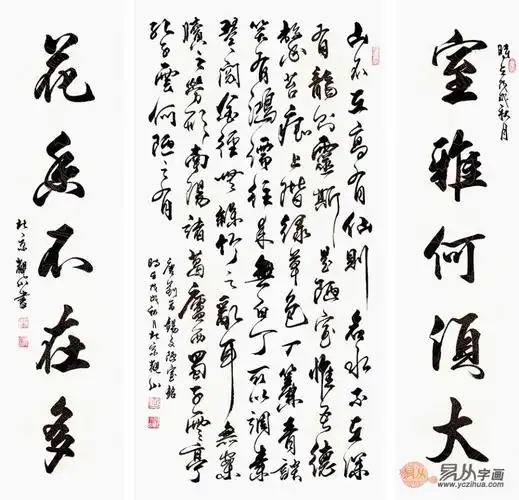 時在戊戌秋月
室雅何須大
山不在高有仙則名水不在深
有龍則靈斯是陋室惟吾德
馨苔痕上階綠草色入簾青談
笑有鴻儒往來無白丁可以調素
琴閱金經無絲竹之亂耳無案
牘之勞形南陽諸葛廬西蜀子雲亭
孔子云何陋之有
唐劉禹錫文陋室銘
時在戊戌秋月於京觀山
花香不在多
於京觀山書
易从字画
www.yczihua.com